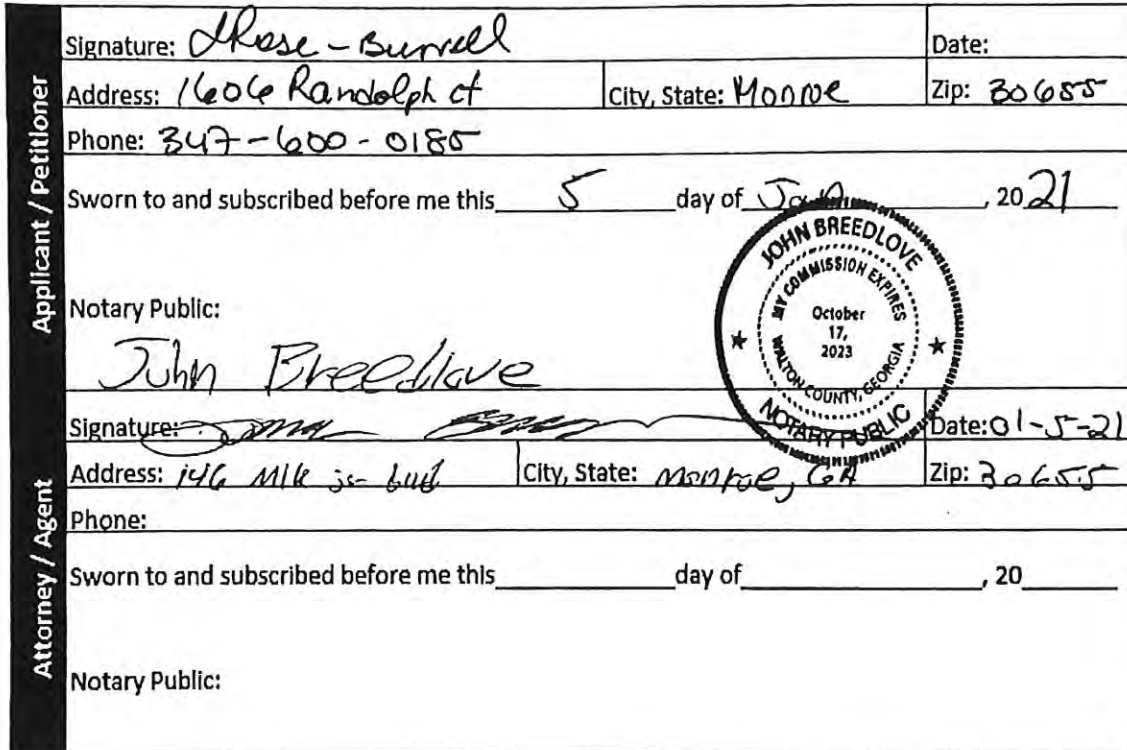 Applicant / Petitioner
Signature: JRose-Burrell Date:
Address: 1606 Randolph ct City, State: Monroe Zip: 30655
Phone: 347-600-0185
Sworn to and subscribed before me this 5 day of Jan, 2021
JOHN BREEDLOVE
MY COMMISSION EXPIRES
October
17,
2023
WALTON COUNTY, GEORGIA
NOTARY PUBLIC
Notary Public:
John Breedlove
Attorney / Agent
Signature: Date: 01-5-21
Address: 146 Mlk jr blvd City, State: monroe, GA Zip: 30655
Phone:
Sworn to and subscribed before me this day of , 20
Notary Public: